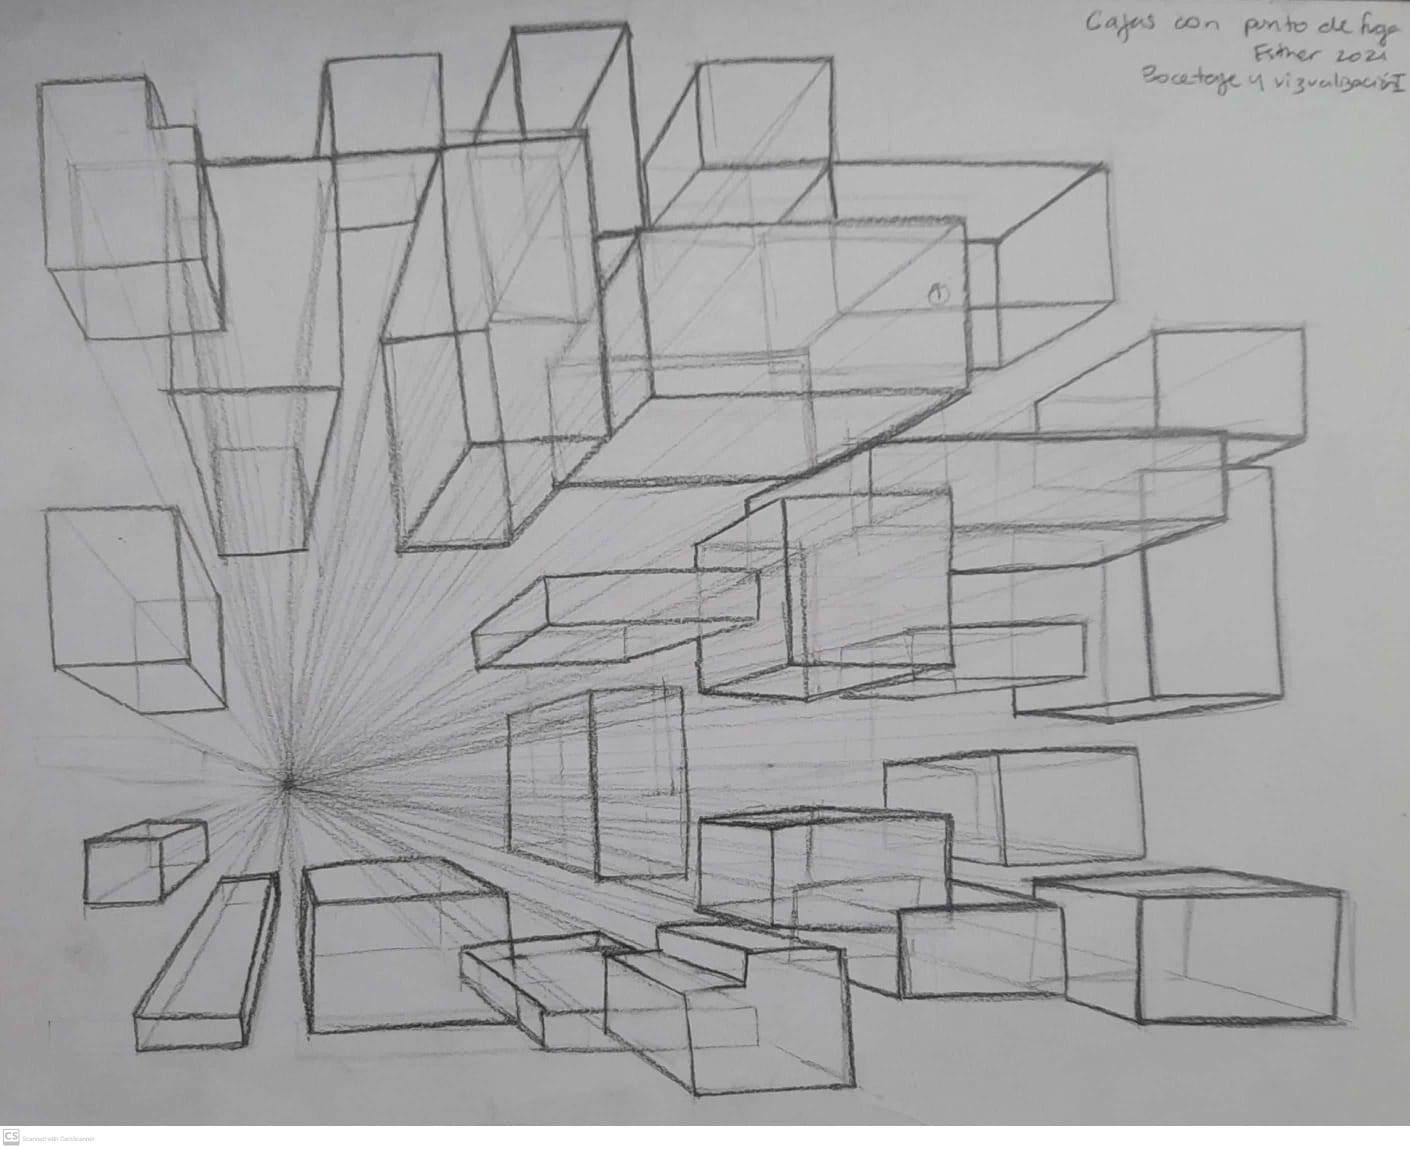 Cajas con punto de fuga
Esther 2021
Bocetaje y vizualización I
CS Scanned with CamScanner